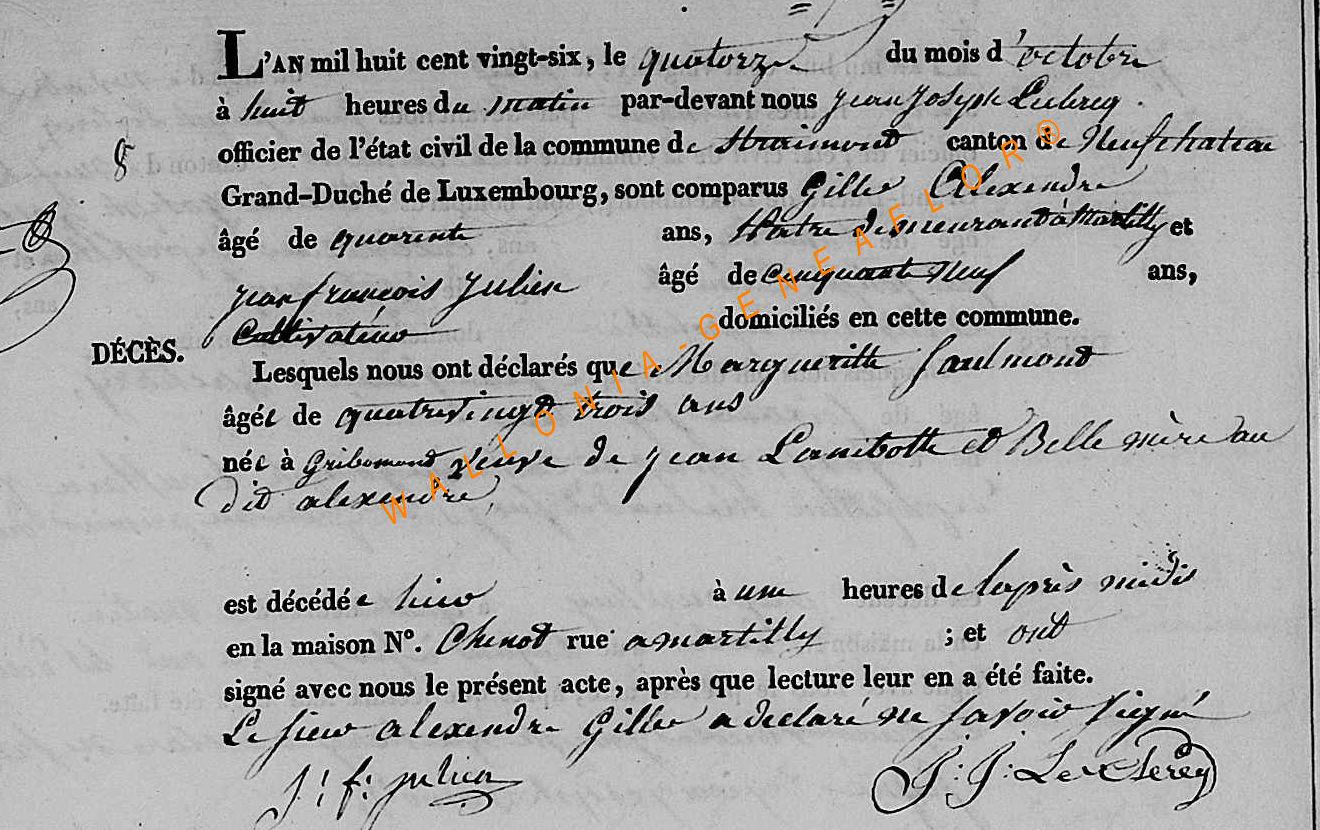 L'AN mil huit cent vingt-six, le quatorze du mois d'octobre
à huit heures du matin par-devant nous jean joseph Leclercq.
officier de l'état civil de la commune de Straimont canton de Neufchateau
Grand-Duché de Luxembourg, sont comparus Gille Alexendre
âgé de quarente ans, demeurant à Martilly et
jean françois julien âgé de cinquante neuf ans,
Cultivateur domiciliés en cette commune.
DÉCÈS.
Lesquels nous ont déclarés que Margueritte Saulmont
âgée de quatrevingt trois ans
née à Gribomont veuve de jean Lambotte et Belle mère au
dit alexendre,
est décédée hier à une heures de laprès midis
en la maison N°. Chenot rue a martilly ; et ont
signé avec nous le présent acte, après que lecture leur en a été faite.
Le sieur alexendre Gille a declaré ne savoir signé
J: f: julien J: J: Le Clercq
WALLONIA-GENEAFLOR®